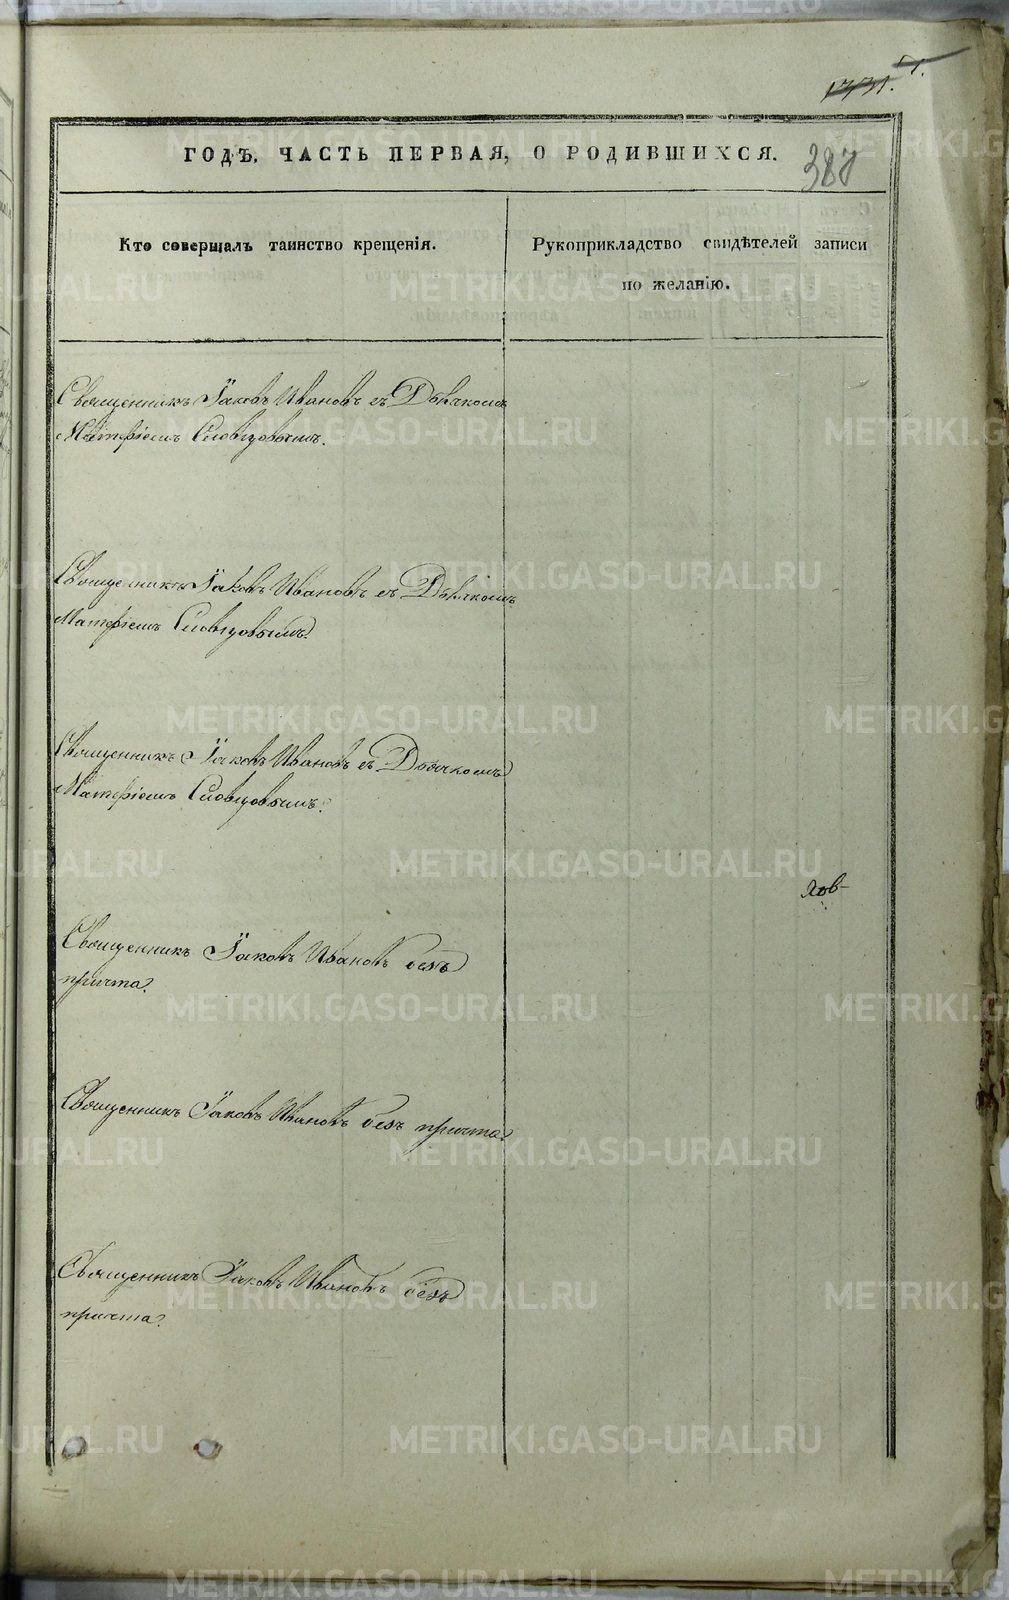 1331.
ГОДЪ. ЧАСТЬ ПЕРВАЯ, О РОДИВШИХСЯ.
387
Кто совершалъ таинство крещенія.
Рукоприкладство свидѣтелей записи
по желанію.
Священникъ Іаковъ Ивановъ съ Дьячкомъ
Матфіемъ Словцовымъ.
Священникъ Іаковъ Ивановъ съ Дьячкомъ
Матфіемъ Словцовымъ.
Священникъ Іаковъ Ивановъ съ Дьячкомъ
Матфіемъ Словцовымъ.
Священникъ Іаковъ Ивановъ безъ
причта.
Священникъ Іаковъ Ивановъ безъ причта.
Священникъ Іаковъ Ивановъ безъ
причта.
METRIKI.GASO-URAL.RU